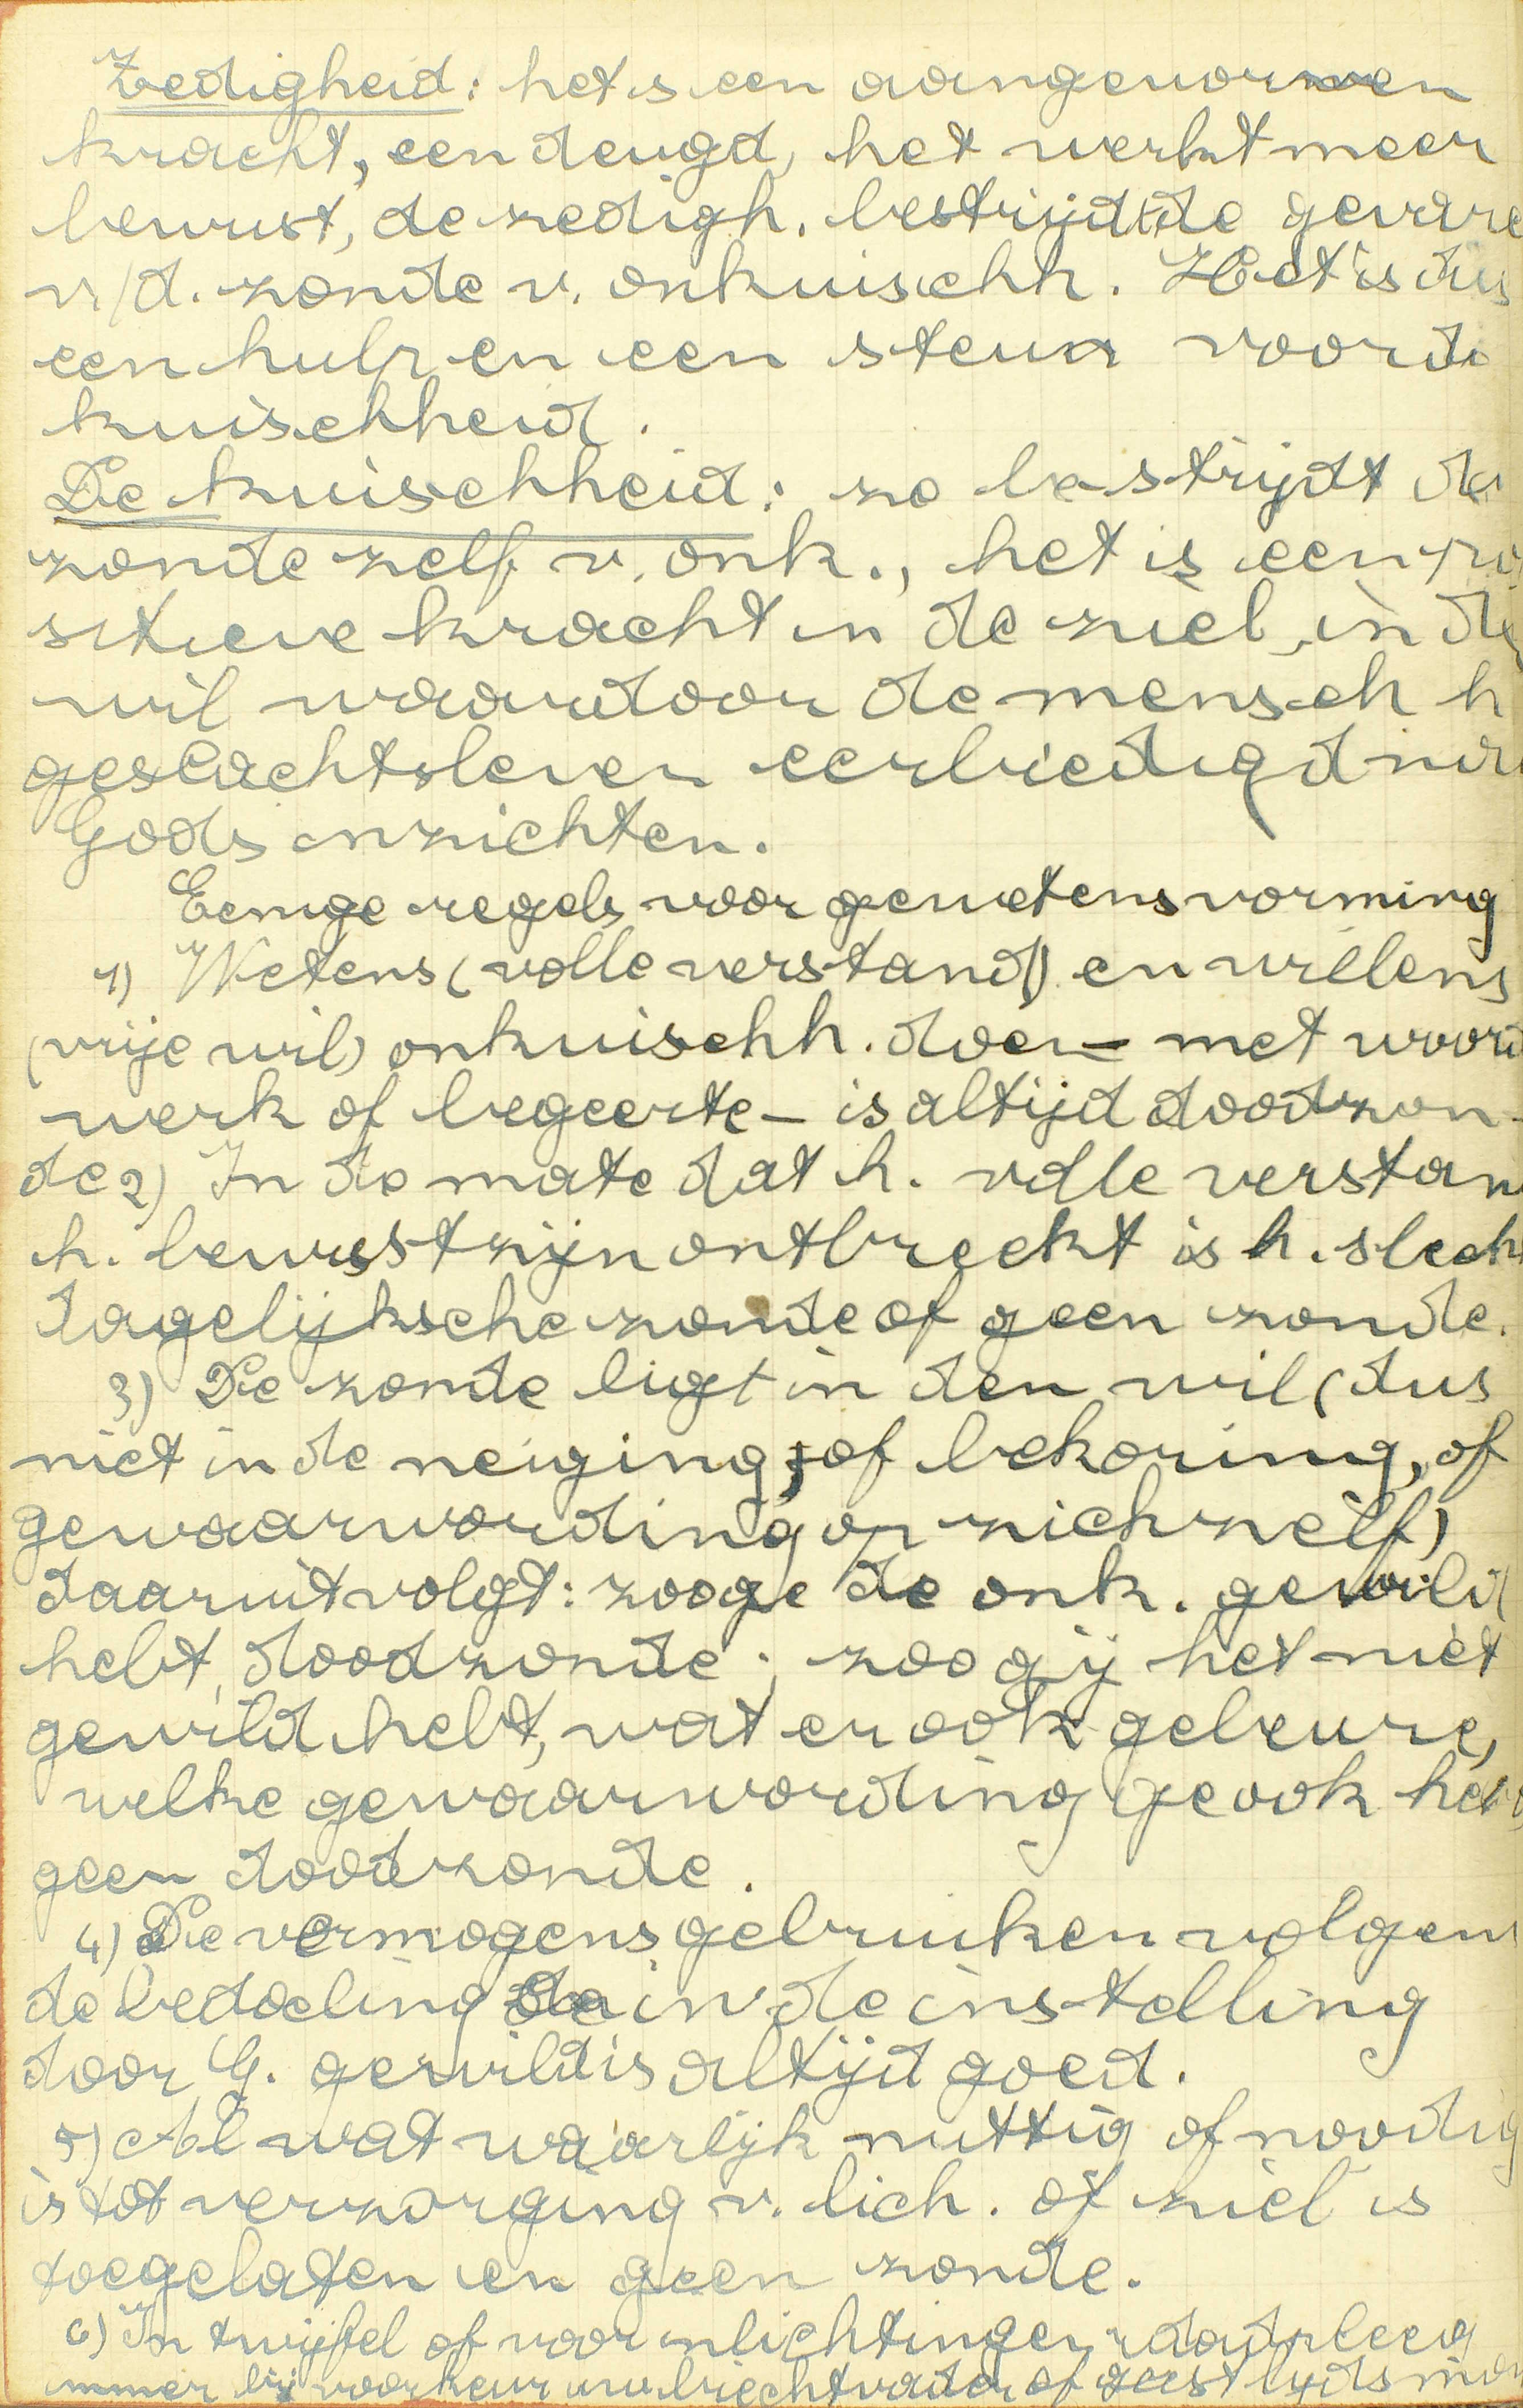 Zedigheid: het is een aangeworven
kracht, een deugd, het werkt meer
bewust, de zedigh. bestrijdt de gevare
v/d. zonde v. onkuischh. Het is dus
een hulp en een steun voor de
kuischheid.
De kuischheid: ze bestrijdt de
zonde zelf v. onk., het is een po
sitieve kracht in de ziel, in de
wil waardoor de mensch h
geslachtsleven eerbiedigd
Gods inzichten.
Eenige regels voor gewetensvorming
1) Wetens (volle verstand) en willens
(vrije wil) onkuischh. doen - met woord
werk of begeerte - is altijd doodzon-
de 2) In de mate dat h. volle verstan
h. bewustzijn ontbreekt is h. slech
dagelijksche zonde of geen zonde.
3) De zonde ligt in den wil (dus
niet in de neiging, of bekoring, of
gewaarwording op zichzelf)
daaruit volgt: zoo ge de onk. gewild
hebt, doodzonde; zoo gij het niet
gewild hebt, wat er ook gebeure,
welke gewaarwording ge ook heb
geen doodzonde.
4) De vermogens gebruiken volgens
de bedoeling in de instelling
door G. gewild is altijd goed.
5) Al wat waarlijk nuttig of noodig
is tot verzorging v. lich. of ziel is
toegelaten en geen zonde.
6) In twijfel of voor inlichtingen raadpleeg
immer bij voorkeur uw biechtvader of geestlijds